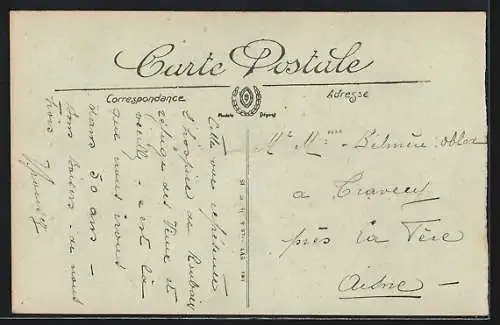 Carte Postale
Correspondance
Adresse
Modèle Déposé
Cette vue représente
l'hospice de Roubaix
refuge des Vieux et
vieille - c'est là
que nous irons
dans 50 ans -
Bons baisers de nous
trois -
Mr Mme
a Travecy
près La Fère
Aisne